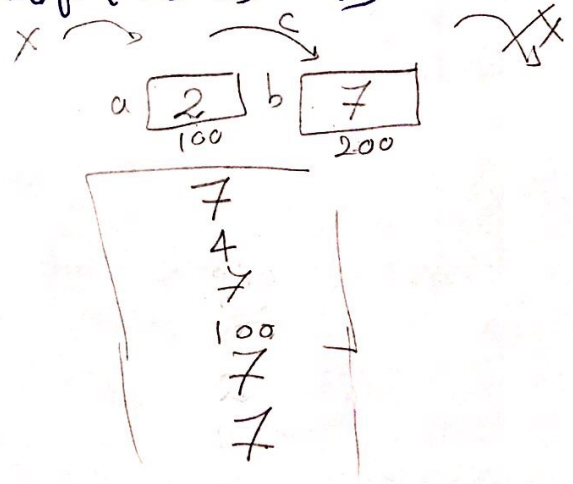 X C X
a 2 b 7
100 200
7
4
7
100
7
7